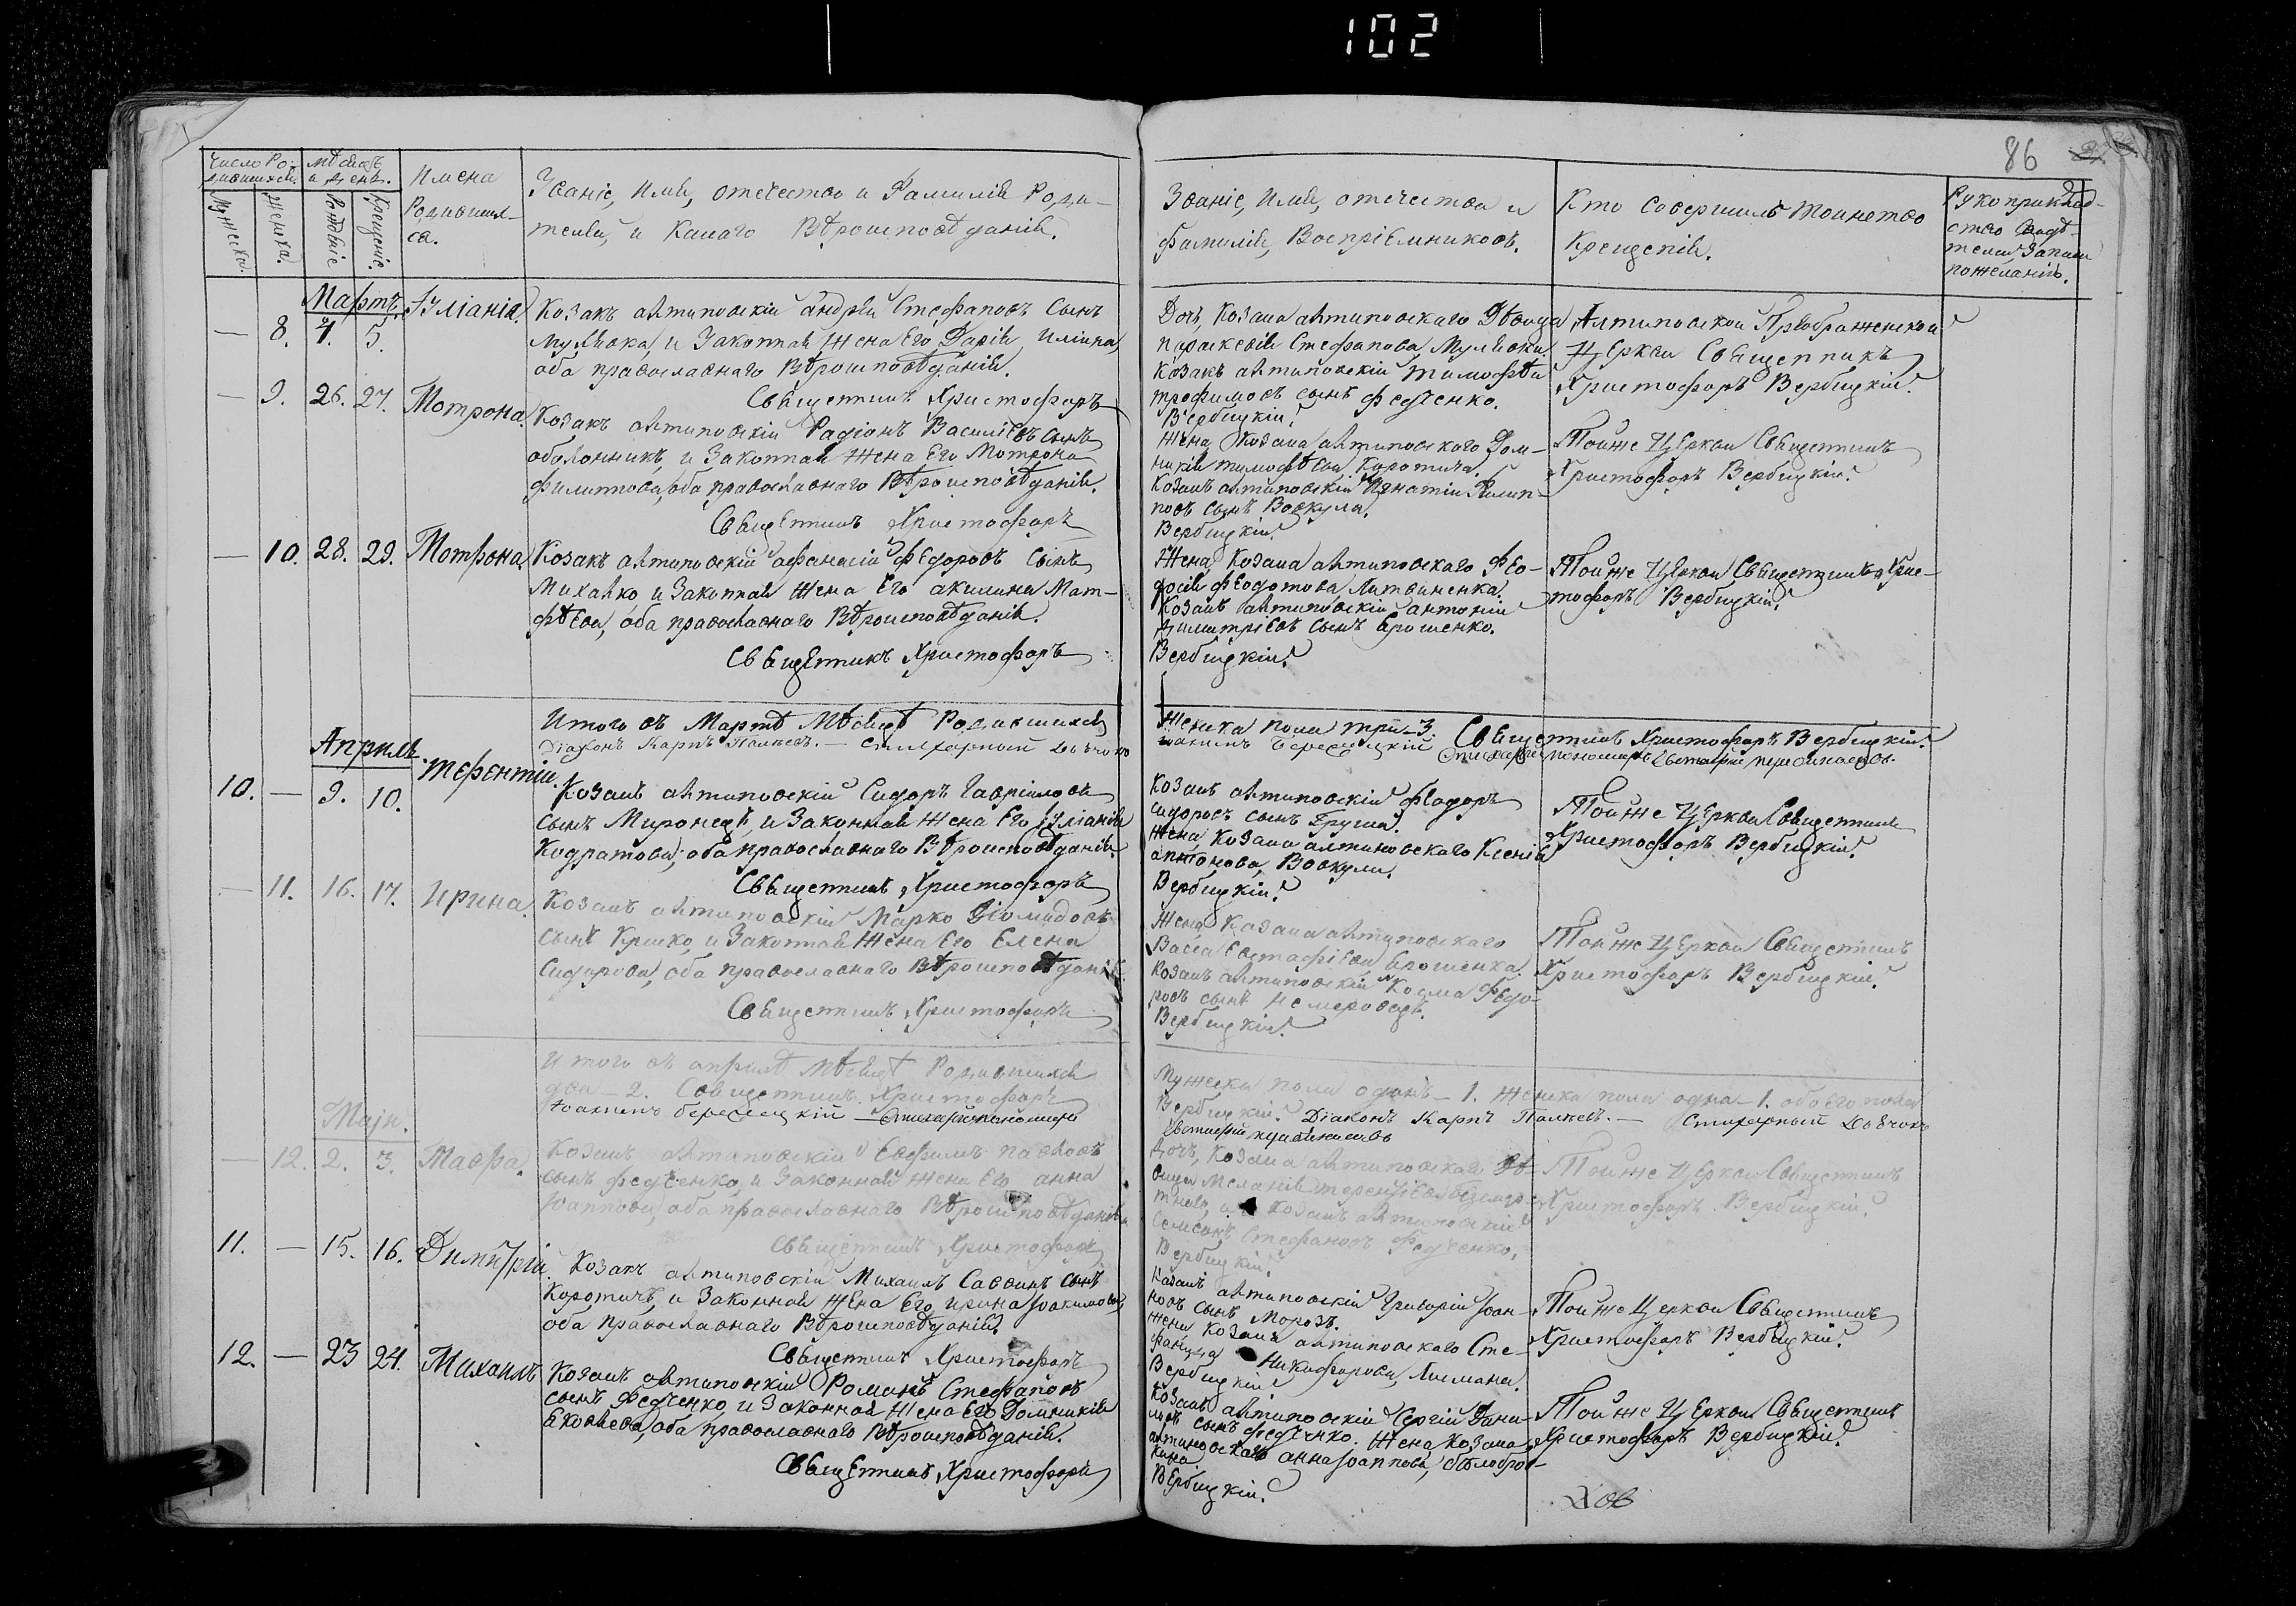 102
86
Число Ро-
дившихся.
Мѣсяцъ
и день.
Имена
Родивших-
ся.
Мужеска.
Женска.
Рождение
Крещение.
Званіе, Имя, отечество и Фамилія Роди-
телей, и Какаго Вѣроисповѣданія.
Званіе, Имя, отечество и
Фамилія, Воспріемниковъ.
Кто Совершилъ Таинство
Крещенія.
Рукоприклад-
ство Свидѣ-
телей Записи
пожеланію.
Мартъ.
— 8. 4. 5.
Іуліанія.
Козакъ антиповскій андрей Стефановъ Сынъ
и Законная Жена Его Дарія
оба православнаго Вѣроисповѣданія.
Священникъ Христофоръ
Дочь, Козака антиповскаго Дѣвица
параскевія Стефанова
Козакъ антиповскій тимофѣй
трофимовъ сынъ Федченко.
Вербицкій.
Антиповской Преображенской
Церкви Священникъ
Христофоръ Вербицкій.
— 9. 26. 27.
Мотрона.
Козакъ антиповскій Радіонъ Василіевъ сынъ
оболонникъ, и Законная Жена Его Мотрона
филиппова, оба православнаго Вѣроисповѣданія.
Священникъ Христофоръ
Жена, Козака антиповскаго Дом-
никія тимофѣева Коротича.
Козакъ антиповскій Игнатій Филип-
повъ сынъ Вовкула.
Вербицкій.
Тойже Церкви Священникъ
Христофоръ Вербицкій.
— 10. 28. 29.
Мотрона
Козакъ антиповскій афанасій Федоровъ Сынъ
Михалко и Законная Жена Его акилина Мат-
фѣева, оба православнаго Вѣроисповѣданія.
Священникъ Христофоръ
Жена, Козака антиповскаго Фео-
досія феодотова Литвиненка.
Козакъ антиповскій антоній
Димитріевъ сынъ Ерошенко.
Вербицкій.
Тойже Церкви Священникъ Хрис-
тофоръ Вербицкій.
Итого въ Мартѣ Мѣсяцѣ Родившихся
Женска пола три — 3. Священникъ Христофоръ Вербицкій.
Діаконъ Карпъ — Стихарный
Апрѣль.
10. — 9. 10.
терентій.
Козакъ антиповскій Сидоръ Гавріиловъ
сынъ Миронецъ, и Законная Жена Его Іуліанія
Кодратова, оба православнаго Вѣроисповѣданія.
Священникъ Христофоръ
Козакъ антиповскій Федоръ
сидоровъ сынъ Груша.
Жена, Козака антиповскаго Ксенія
антонова, Вовкули.
Вербицкій.
Тойже Церкви Священникъ
Христофоръ Вербицкій.
— 11. 16. 17.
Ирина.
Козакъ антиповскій Марко Діомидовъ
сынъ и Законная Жена Его Елена
Сидорова, оба православнаго Вѣроисповѣданія.
Священникъ Христофоръ
Жена, Козака антиповскаго
Васса Евстафіева Ерошенка.
Козакъ антиповскій Косма Федо-
ровъ сынъ Немеровецъ.
Вербицкій.
Тойже Церкви Священникъ
Христофоръ Вербицкій.
Итого въ апрѣлѣ Мѣсяцѣ Родившихся
Мужеска пола одинъ — 1. Женска пола одна — 1. обоего пола
два — 2. Священникъ Христофоръ
Вербицкій. Діаконъ Карпъ — Стихарный
Маія.
— 12. 2. 3.
Мавра.
Козакъ антиповскій Евфимъ павловъ
сынъ Федченко, и Законная Жена Его анна
Іоаннова, оба православнаго Вѣроисповѣданія.
Священникъ Христофоръ
Дочь, Козака антиповскаго Дѣ-
вица Меланія терентіева
Козакъ антиповскій
Стефановъ Федченко,
Вербицкій.
Тойже Церкви Священникъ
Христофоръ Вербицкій.
11. — 15. 16.
Димитрій.
Козакъ антиповскій Михаилъ Саввинъ сынъ
Коротичъ, и Законная Жена Его ирина Іоакимова,
оба Православнаго Вѣроисповѣданія.
Священникъ Христофоръ
Козакъ антиповскій Григорій Іоан-
новъ сынъ Морозъ.
Жена Козака антиповскаго Сте-
фанида Никифорова, Лисмана.
Вербицкій.
Тойже Церкви Священникъ
Христофоръ Вербицкій.
12. — 23 24.
Михаилъ
Козакъ антиповскій Романъ Стефановъ
сынъ Федченко, и Законная Жена Его Домникія
Яковлева, оба православнаго Вѣроисповѣданія.
Священникъ Христофоръ
Козакъ антиповскій Сергій Дани-
ловъ сынъ Федченко. Жена, Козака
антиповскаго анна Іоаннова,
Вербицкій.
Тойже Церкви Священникъ
Христофоръ Вербицкій.